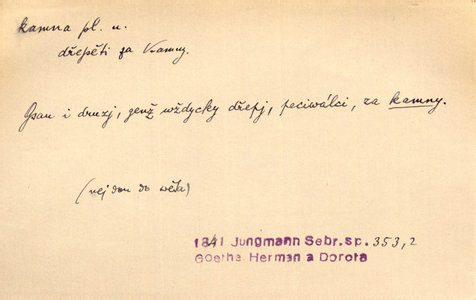 kamna pl. n.
dřepěti za kamny.
Gsau i druzj, genž wždycky dřepj, peciwálci, za kamny.
(nejdau do swěta)
1841 Jungmann Sebr.sp. 353,2
Goethe Herman a Dorota